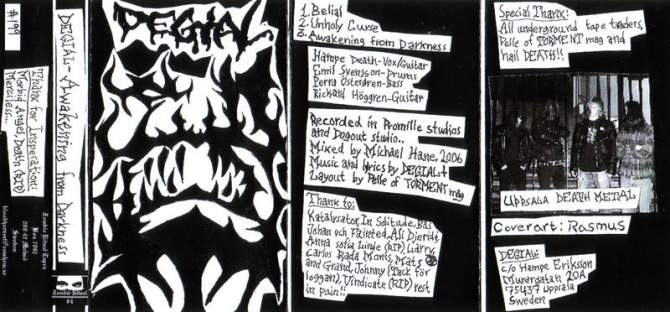 #199
Thanx for Insperation:
Morbid Angel, Death (RIP)
Merciless..
DEGIAL - Awakening from Darkness
Zombie Ritual Tapes
Box 7082
Sweden
Zombie Ritual
#4
DEGIAL
1. Belial
2. Unholy Curse
3. Awakening from Darkness
Hampe Death-Vox/Guitar
Emil Svensson-Drums
Perra Osterdren-Bass
Rickard Höggren-Guitar
Recorded in Promille studios
and Dogout studio..
Mixed by Michael Hane, 2006
Music and lyrics by DEGIAL
Layout by Pelle of TORMENT mag
Thanx to:
Katalysator, In Solitude, Bas
Johan och Fainted, Asi Djeridi,
Anna Sofia Linje (RIP) Lidrix
Carlos Rada Monis, Mats
and Grand, Johnny (Tack för
loggan), Vindicate (RIP) rest
in pain!!
Special Thanx:
All underground tape traders,
Pelle of TORMENT mag and
hail DEATH!!
Uppsala DEATH METAL
Coverart: Rasmus
DEGIAL:
c/o Hampe Eriksson
Murargatan 20A
75437 Uppsala
Sweden